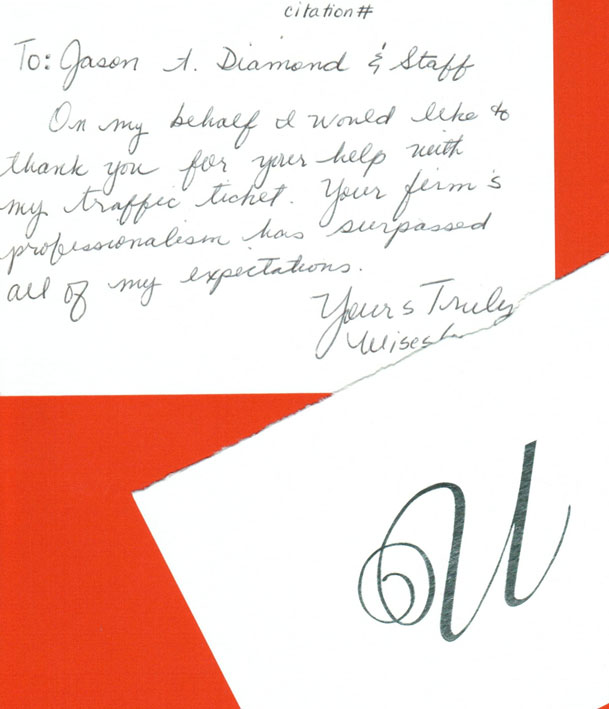 citation#
To: Jason A. Diamond & Staff
On my behalf I would like to
thank you for your help with
my traffic ticket. Your firm's
professionalism has surpassed
all of my expectations.
Yours Truly
U